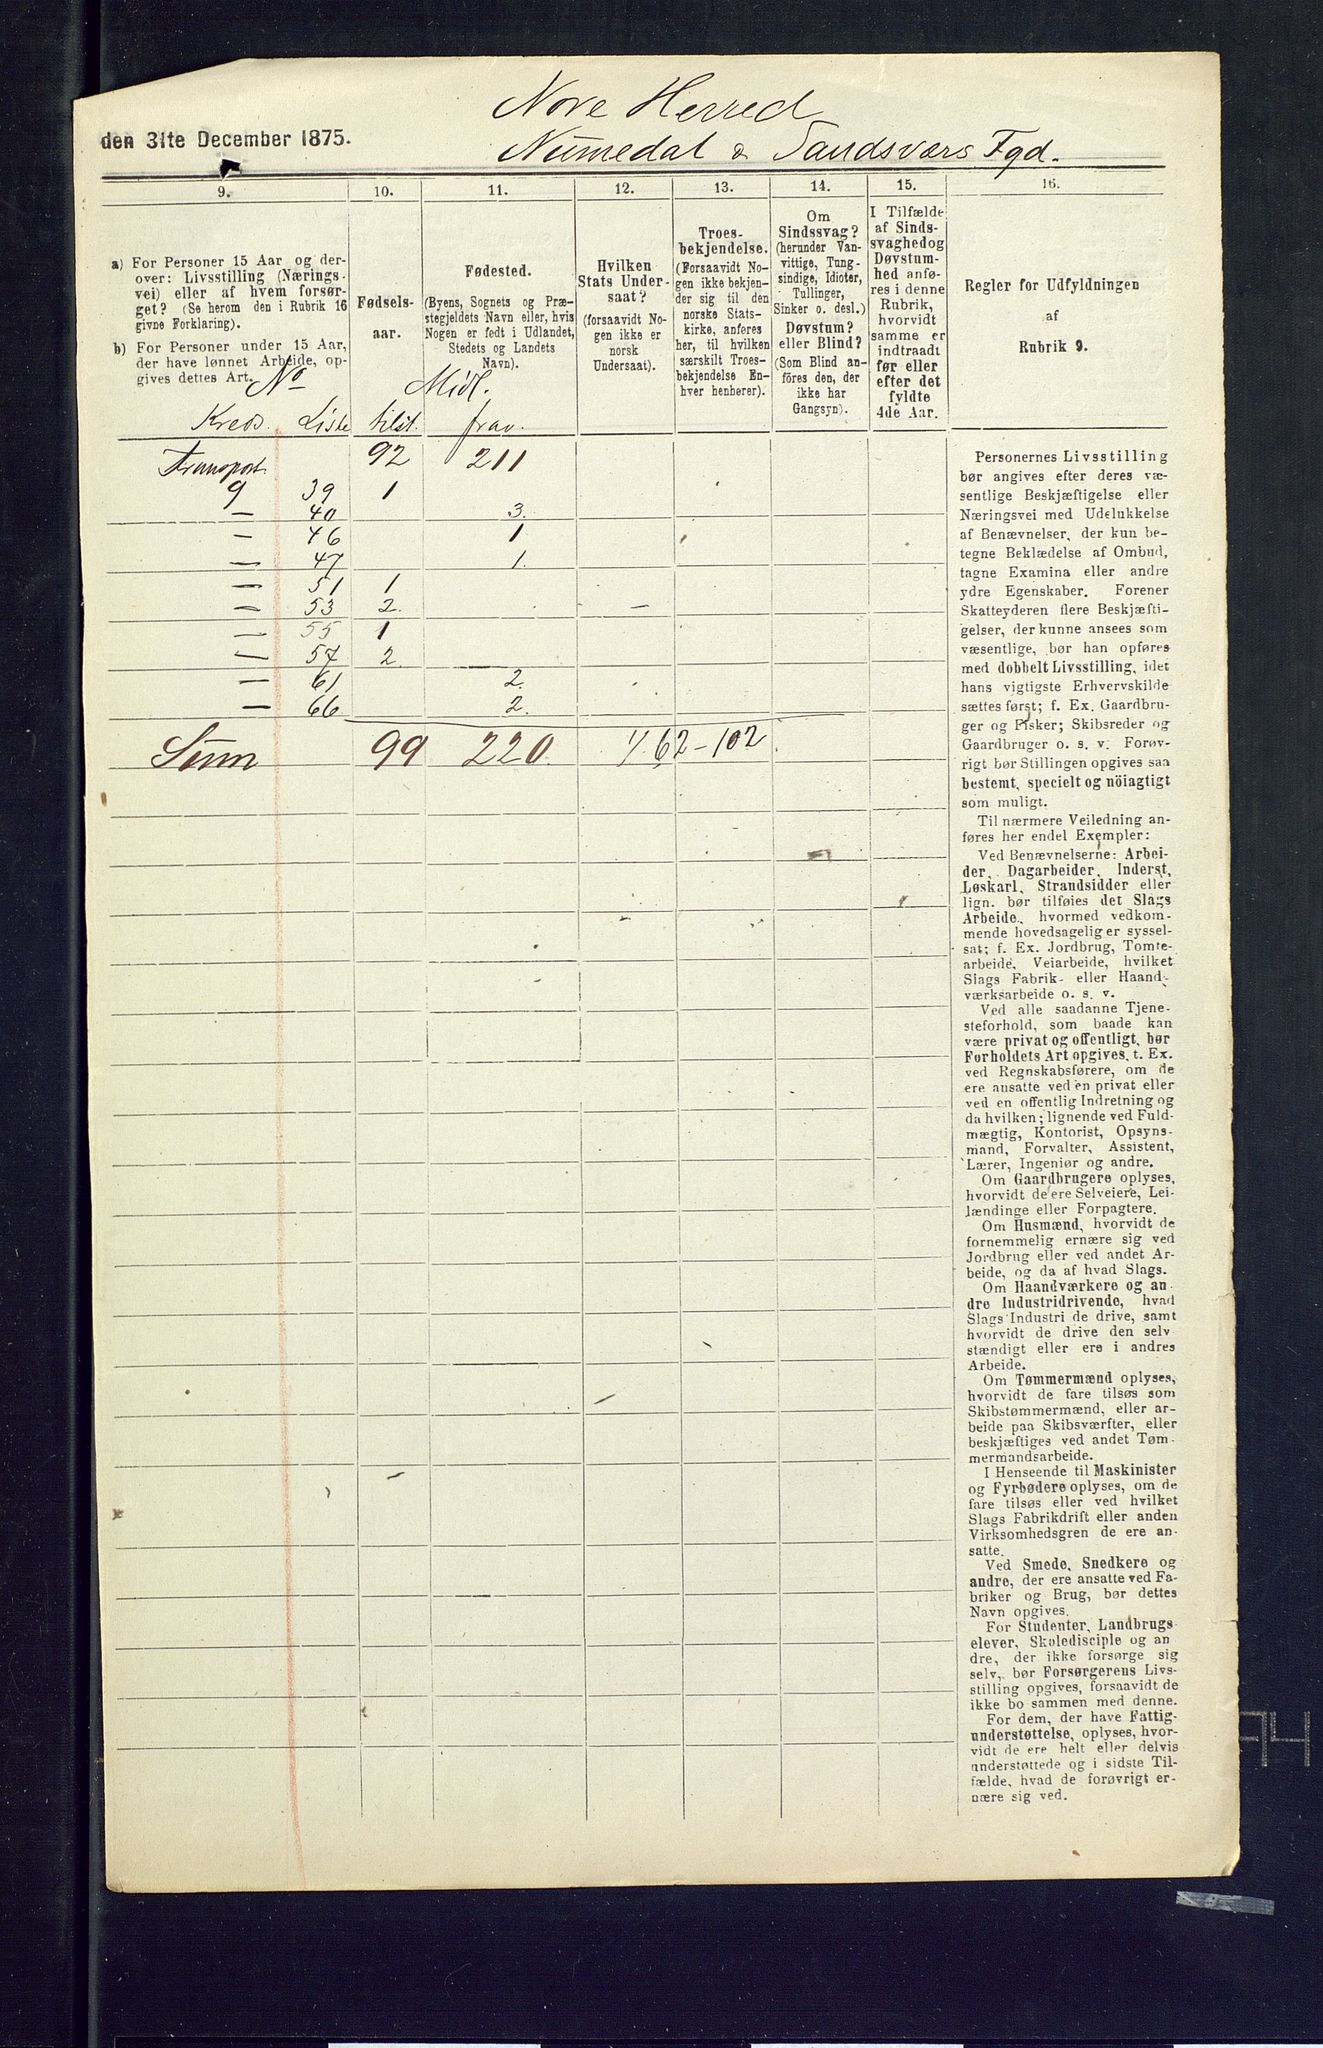 Nore Herred
den 31te December 1875.
Numedal & Sandsværs Fgd.
9.
a) For Personer 15 Aar og der-
over: Livsstilling (Nærings-
vei) eller af hvem forsør-
get? (Se herom den i Rubrik 16
givne Forklaring).
b) For Personer under 15 Aar,
der have lønnet Arbeide, op-
gives dettes Art.
10.
Fødsels-
aar.
11.
Fødested.
(Byens, Sognets og Præ-
stegjeldets Navn eller, hvis
Nogen er født i Udlandet,
Stedets og Landets
Navn).
12.
Hvilken
Stats Under-
saat?
(forsaavidt No-
gen ikke er
norsk
Undersaat).
13.
Troes-
bekjendelse.
(Forsaavidt No-
gen ikke bekjen-
der sig til den
norske Stats-
kirke, anføres
her, til hvilken
særskilt Troes-
bekjendelse En-
hver henhører).
14.
Om
Sindssvag?
(herunder Van-
vittige, Tung-
sindige, Idioter,
Tullinger,
Sinker o. desl.)
Døvstum?
eller Blind?
(Som Blind an-
föres den, der
ikke har
Gangsyn).
15.
I Tilfælde
af Sinds-
svaghed og
Døvstum-
hed anfø-
res i denne
Rubrik,
hvorvidt
samme er
indtraadt
før eller
efter det
fyldte
4de Aar.
16.
Regler for Udfyldningen
af
Rubrik 9.
No Midl.
Kreds. Liste tilst. frav.
Transport 92 211
9 39 1
— 40 3.
— 46 1
— 47 1.
— 51 1
— 53 2.
— 55 1
— 57 2
— 61 2.
— 66 2.
Sum 99 220. 62-102
Personernes Livsstilling
bør angives efter deres væ-
sentlige Beskjæftigelse eller
Næringsvei med Udelukkelse
af Benævnelser, der kun be-
tegne Beklædelse af Ombud,
tagne Examina eller andre
ydre Egenskaber. Forener
Skatteyderen flere Beskjæfti-
gelser, der kunne ansees som
væsentlige, bør han opføres
med dobbelt Livsstilling, idet
hans vigtigste Erhvervskilde
sættes først; f. Ex. Gaardbru-
ger og Fisker; Skibsreder og
Gaardbruger o. s. v. Forøv-
rigt bør Stillingen opgives saa
bestemt, specielt og nöiagtigt
som muligt.
Til nærmere Veiledning an-
føres her endel Exempler:
Ved Benævnelserne: Arbei-
der, Dagarbeider, Inderst,
Løskarl, Strandsidder eller
lign. bør tilføies det Slags
Arbeide, hvormed vedkom-
mende hovedsagelig er syssel-
sat; f. Ex. Jordbrug, Tomte-
arbeide, Veiarbeide, hvilket
Slags Fabrik- eller Haand-
værksarbeide o. s. v.
Ved alle saadanne Tjene-
steforhold, som baade kan
være privat og offentligt, bør
Forholdets Art opgives, t. Ex.
ved Regnskabsførere, om de
ere ansatte ved en privat eller
ved en offentlig Indretning og
da hvilken; lignende ved Fuld-
mægtig, Kontorist, Opsyns-
mand, Forvalter, Assistent,
Lærer, Ingeniør og andre.
Om Gaardbrugere oplyses,
hvorvidt de ere Selveiere, Lei-
lændinge eller Forpagtere.
Om Husmænd, hvorvidt de
fornemmelig ernære sig ved
Jordbrug eller ved andet Ar-
beide, og da af hvad Slags.
Om Haandværkere og an-
dre Industridrivende, hvad
Slags Industri de drive, samt
hvorvidt de drive den selv-
stændigt eller ere i andres
Arbeide.
Om Tømmermænd oplyses,
hvorvidt de fare tilsøs som
Skibstømmermænd, eller ar-
beide paa Skibsværfter, eller
beskjæftiges ved andet Tøm-
mermandsarbeide.
I Henseende til Maskinister
og Fyrbødere oplyses, om de
fare tilsøs eller ved hvilket
Slags Fabrikdrift eller anden
Virksomhedsgren de ere an-
satte.
Ved Smede, Snedkere og
andre, der ere ansatte ved Fa-
briker og Brug, bør dettes
Navn opgives.
For Studenter, Landbrugs-
elever, Skoledisciple og an-
dre, der ikke forsørge sig
selv, bør Forsørgerens Livs-
stilling opgives, forsaavidt de
ikke bo sammen med denne.
For dem, der have Fattig-
understøttelse, oplyses, hvor-
vidt de ere helt eller delvis
understøttede og i sidste Til-
fælde, hvad de forøvrigt er-
nære sig ved.